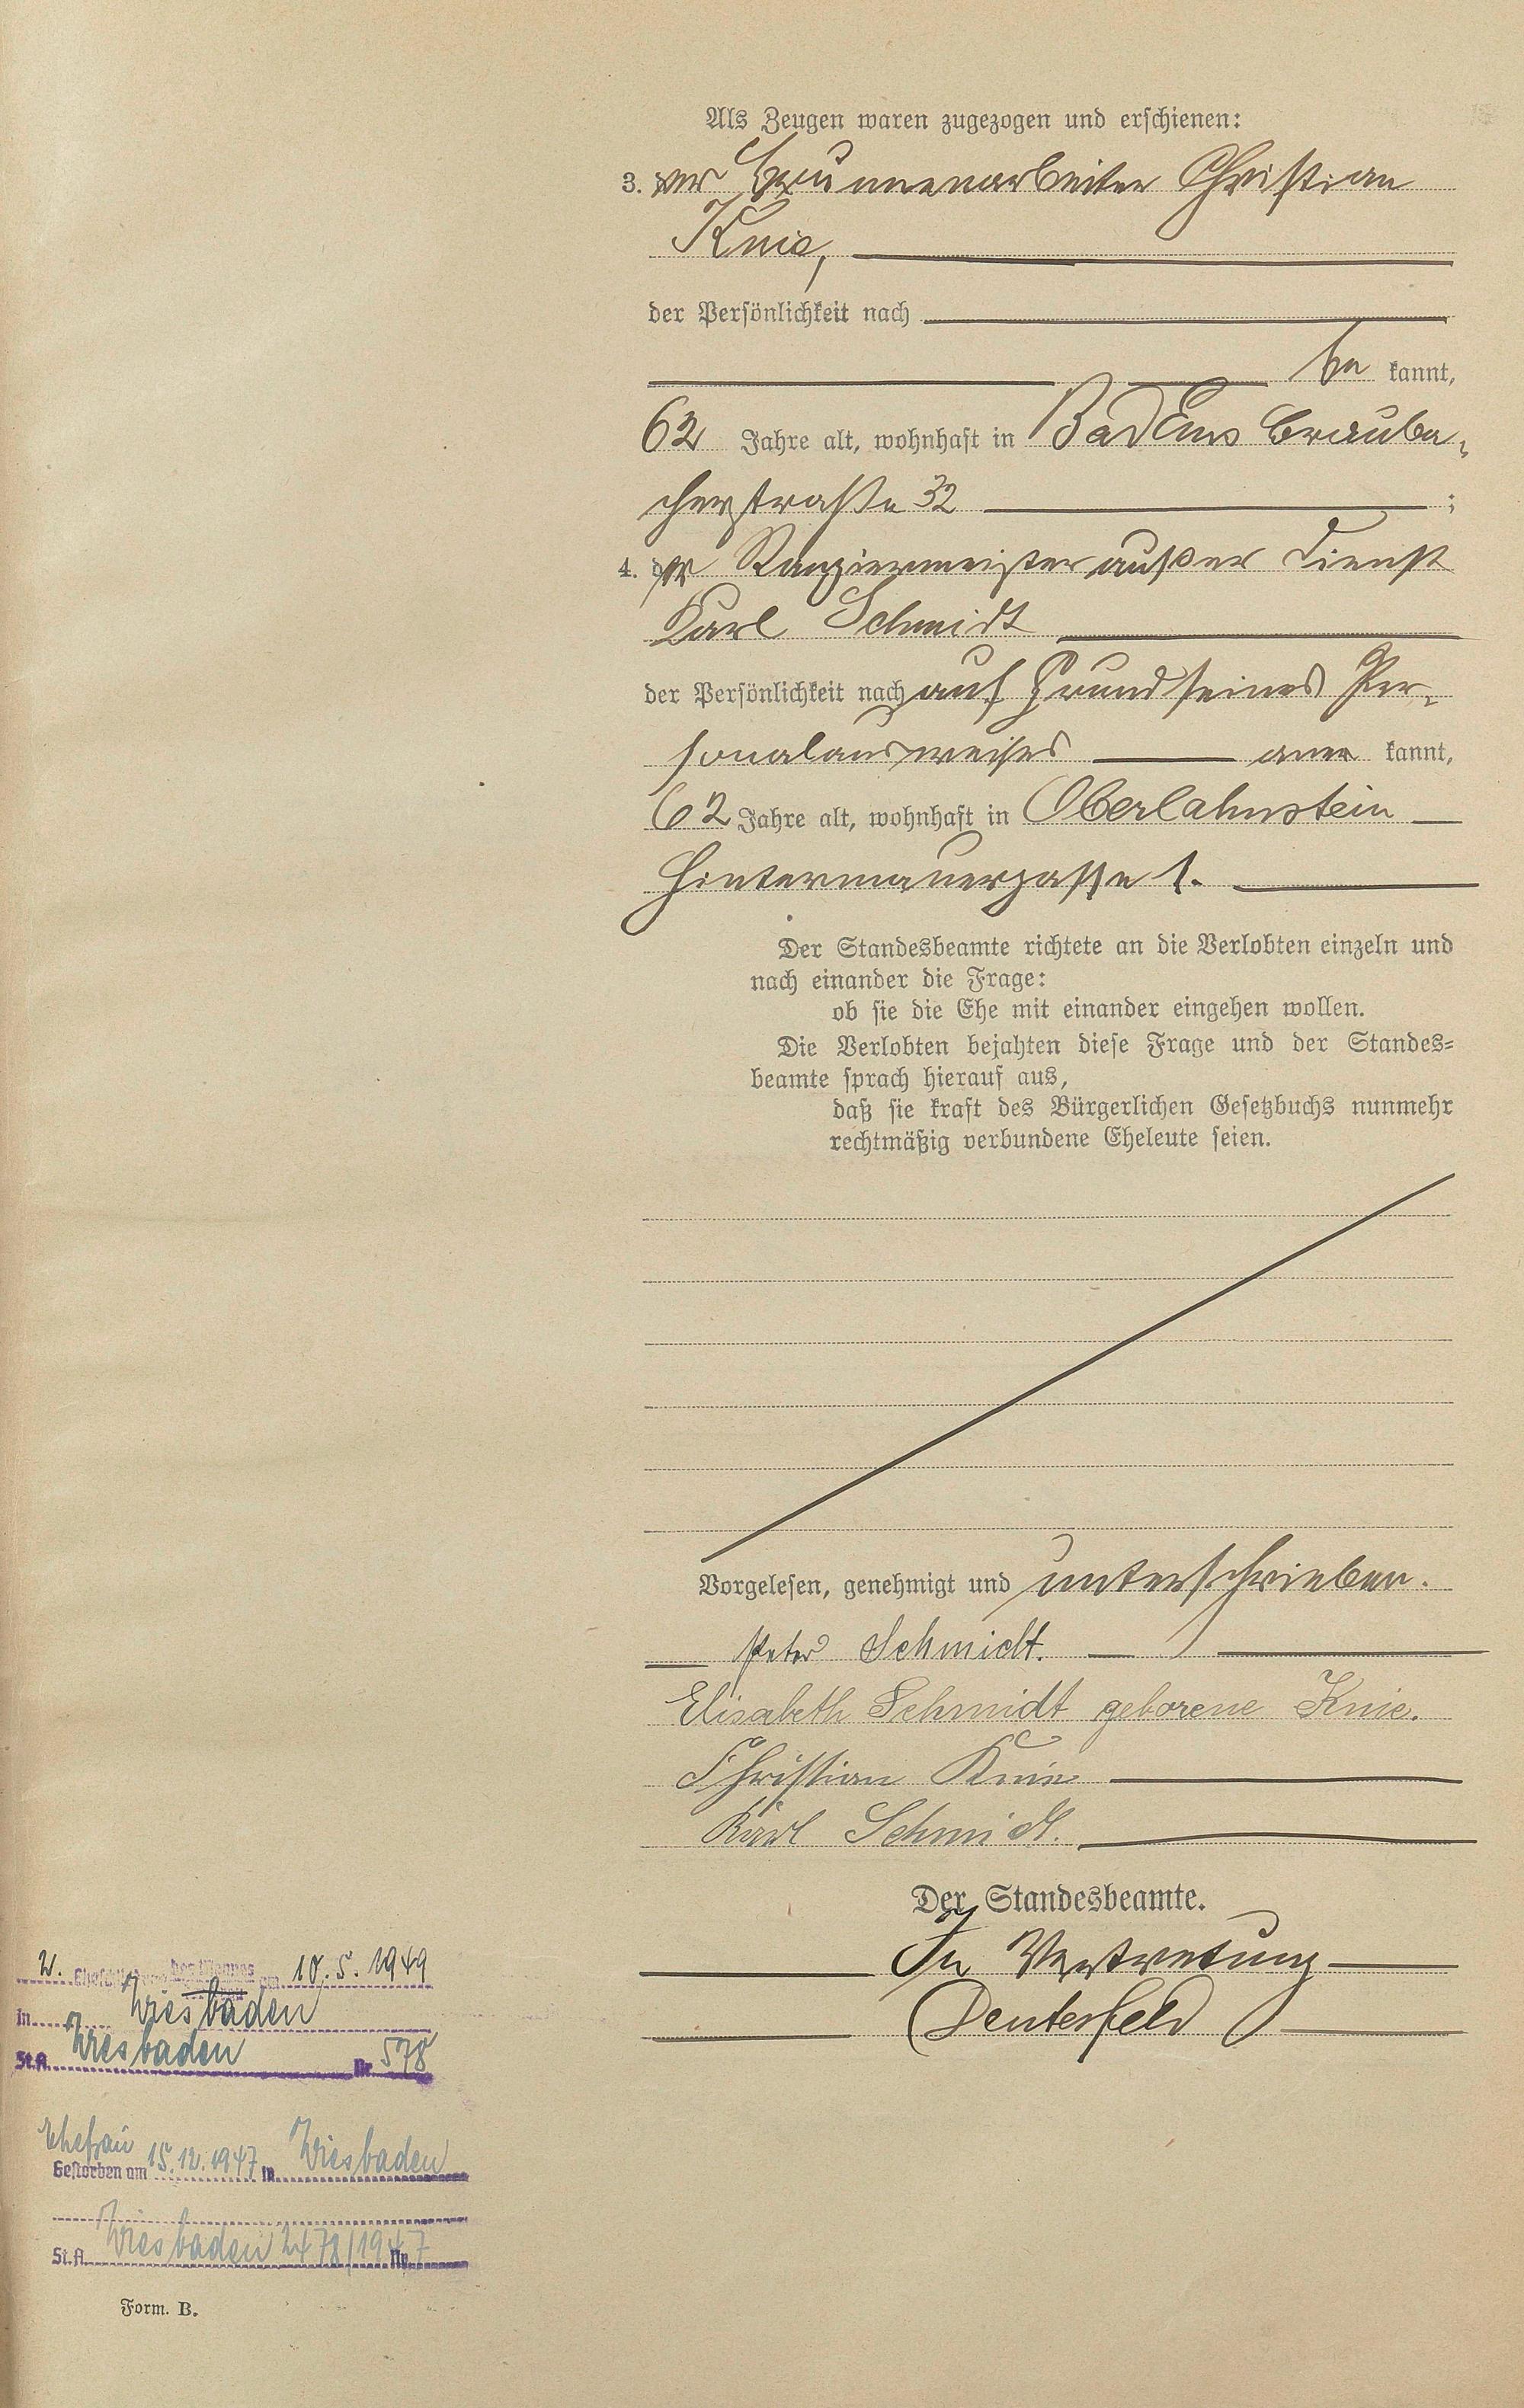 Als Zeugen waren zugezogen und erschienen:
3. der Brunnenarbeiter Christian
Knie,
der Persönlichkeit nach
be kannt,
62 Jahre alt, wohnhaft in Bad Ems Brauba-
cherstraße 32 ;
4. der Rangiermeister außer Dienst
Karl Schmidt
der Persönlichkeit nach auf Grund seines Per-
sonalausweises aner kannt,
62 Jahre alt, wohnhaft in Oberlahnstein
Hintermauergasse 1.
Der Standesbeamte richtete an die Verlobten einzeln und
nach einander die Frage:
ob sie die Ehe mit einander eingehen wollen.
Die Verlobten bejahten diese Frage und der Standes-
beamte sprach hierauf aus,
daß sie kraft des Bürgerlichen Gesetzbuchs nunmehr
rechtmäßig verbundene Eheleute seien.
Vorgelesen, genehmigt und unterschrieben.
Peter Schmidt.
Elisabeth Schmidt geborene Knie.
Christian Knie
Karl Schmidt.
Der Standesbeamte.
In Vertretung
Deutesfeld
2. Eheschließung des Mannes am 10. 5. 1949
in Wiesbaden
St.A. Wiesbaden Nr. 578
Ehefrau
Gestorben am 15.12.1947 in Wiesbaden
St.A. Wiesbaden 2478/1947 Nr.
Form. B.